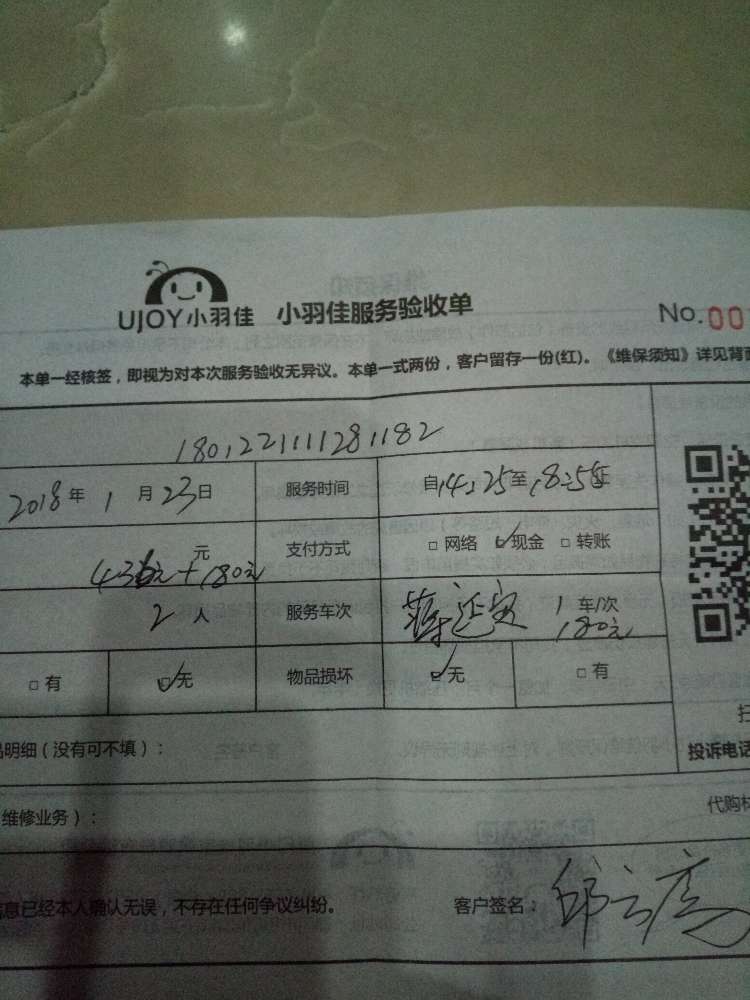 UJOY小羽佳 小羽佳服务验收单
No.00
本单一经核签，即视为对本次服务验收无异议。本单一式两份，客户留存一份(红)。《维保须知》详见背面
1801221111281182
2018年1月23日 服务时间 自14:25至18:25
元 支付方式 □网络 ☑现金 □转账
+180元
2人 服务车次 1车/次
180元
□有 ☑无 物品损坏 ☑无 □有
明细（没有可不填）：
投诉电话
维修业务）：
代购材
信息已经本人确认无误，不存在任何争议纠纷。 客户签名：